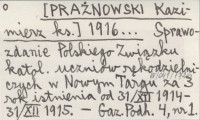 [PRAŻNOWSKI Kazi-
mierz ks.] 1916... Sprawo-
zdanie Polskiego Związku
katol. uczniów rękodzielni-
czych w Nowym Targu za 3
rok istnienia od 31/XII 1914-
31/XII 1915. - Gaz. Podh. 4, nr 1.